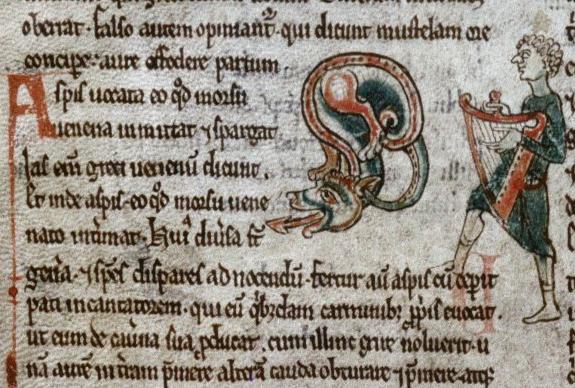 oberrat. falso autem opiniant². qui dicunt mustelam ore
concipe. aure effodere partum
Aspis uocata eo q̄d morsu
uenena inmittat ⁊ spargat.
Ias em̄ greci uenenū dicunt.
Et inde aspis. eo q̄d morsu uene
nato intimat. Hui² diu̾sa st̄
gen̾a. ⁊ sp̄es dispares ad nocendū. fertur aū aspis cū cepit
pati incantatorem. qui eū q̇bꝰdam carminibꝰ ꝓp̾is euocat.
ut eum de cauna sua ꝓducat. cum illinc exire noluerit. u
nā aurē in t̾ram p̾mere alterā cauda obturare ⁊ p̾mere. atqꝫ